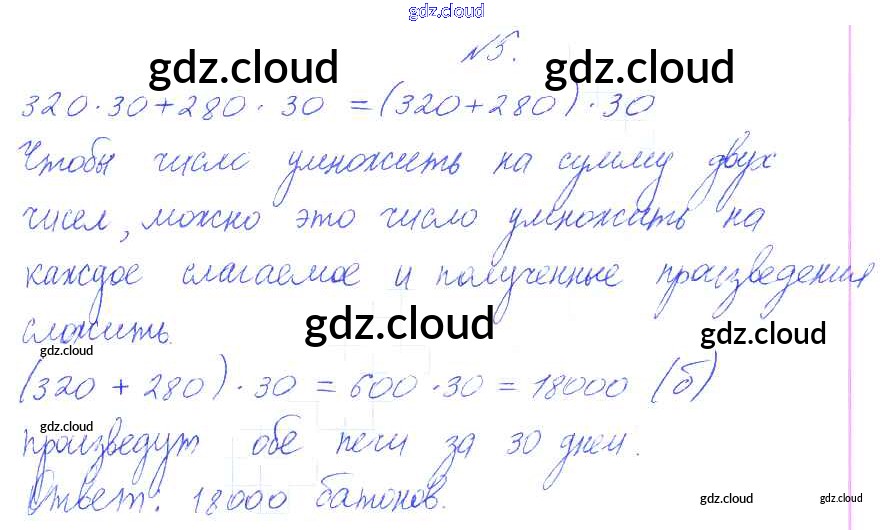 gdz.cloud
№5.
gdz.cloud gdz.cloud
320·30+280·30 =(320+280)·30
Чтобы число умножить на сумму двух
чисел, можно это число умножить на
каждое слагаемое и полученные произведения
сложить.
gdz.cloud gdz.cloud
gdz.cloud
(320 + 280)·30 = 600·30 = 18000 (б)
gdz.cloud
произведут обе печи за 30 дней.
Ответ: 18000 батонов.
gdz.cloud gdz.cloud